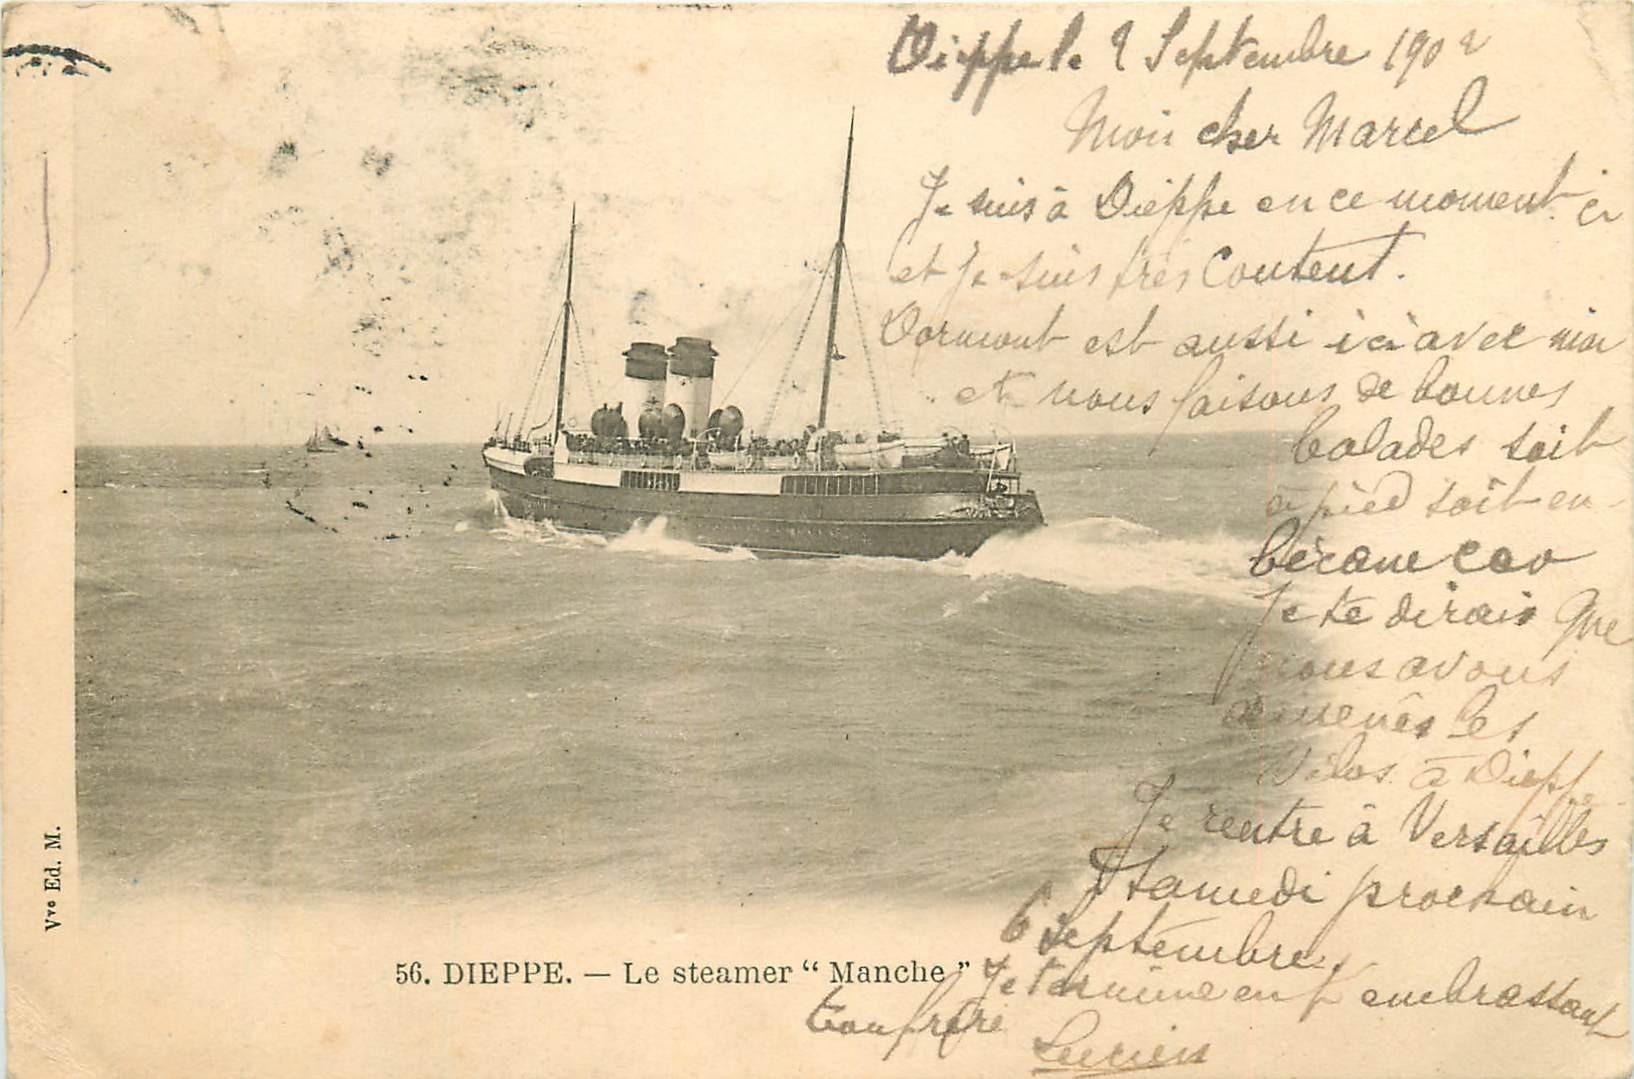 Dieppe le 2 Septembre 1902
Mon cher Marcel
Je suis à Dieppe en ce moment ci
et je suis très Content.
Dormont est aussi ici avec moi
et nous faisons de bonnes
balades soit
à pied soit en
bécane car
Je te dirais que
nous avons
amenés les
Vélos à Dieppe
Je rentre à Versailles
Samedi prochain
6 Septembre.
Je termine en t'embrassant
ton frère
Lucien
56. DIEPPE. — Le steamer “ Manche ”
Vve Ed. M.